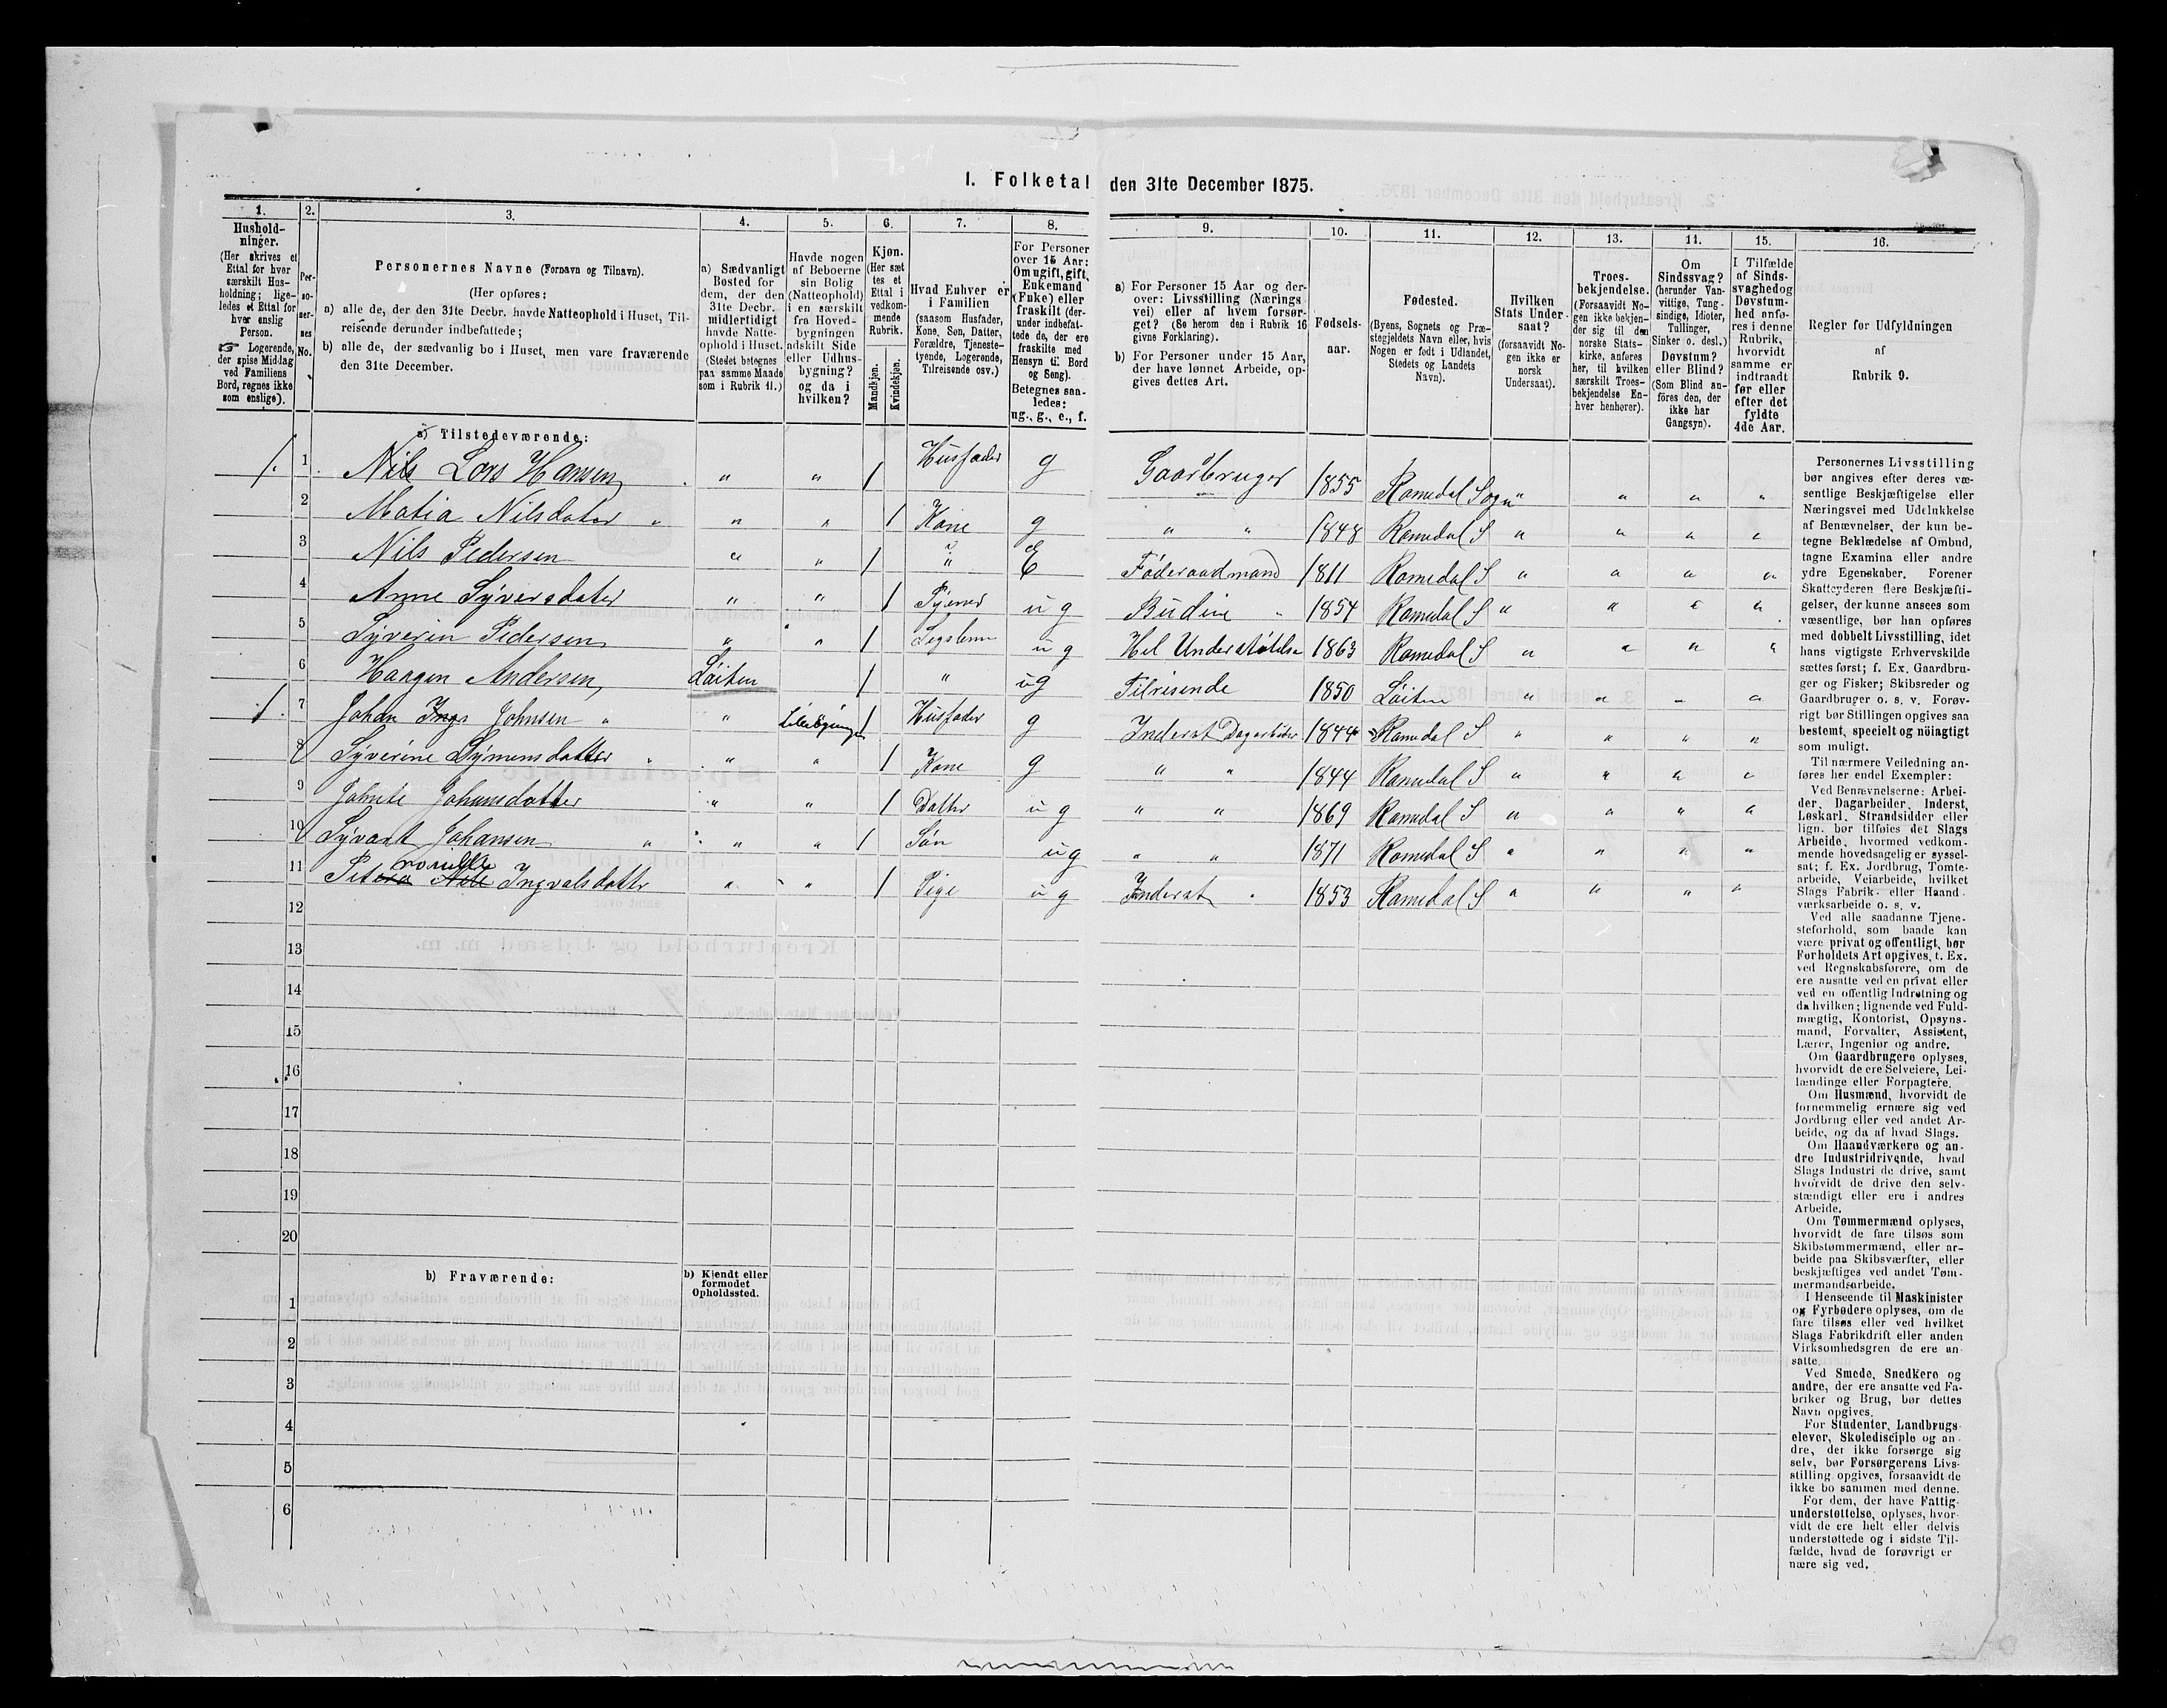 1. Folketal den 31te December 1875.
1. 2. 3. 4. 5. 6. 7. 8. 9. 10. 11. 12. 13. 14. 15. 16.
Hushold-
ninger.
(Her skrives et
Ettal for hver
særskilt Hus-
holdning; lige-
ledes et Ettal for
hver enslig
Person.
☞ Logerende,
der spise Middag
ved Familiens
Bord, regnes ikke
som enslige).
Per-
so-
ner-
nes
No.
Personernes Navne (Fornavn og Tilnavn).
(Her opføres:
a) alle de, der den 31te Decbr. havde Natteophold i Huset, Til-
reisende derunder indbefattede;
b) alle de, der sædvanlig bo i Huset, men vare fraværende
den 31te December.
a) Sædvanligt
Bosted for
dem, der den
31te Decbr.
midlertidigt
havde Natte-
ophold i Huset.
(Stedet betegnes
paa samme Maade
som i Rubrik 11.)
Havde nogen
af Beboerne
sin Bolig
(Natteophold)
i en særskilt
fra Hoved-
bygningen
adskilt Side
eller Udhus-
bygning?
og da i
hvilken?
Kjøn.
(Her sæt
tes et
Ettal i
vedkom-
mende
Rubrik.
Mandkjøn.
Kvindekjøn.
Hvad Enhver er
i Familien
(saasom Husfader,
Kone, Søn, Datter,
Forældre, Tjeneste-
tyende, Logerende,
Tilreisende osv.)
For Personer
over 15 Aar:
Om ugift, gift,
Enkemand
(Enke) eller
fraskilt (der-
under indbefat-
tede de, der ere
fraskilte med
Hensyn til Bord
og Seng).
Betegnes saa-
ledes:
ug., g., e., f.
a) For Personer 15 Aar og der-
over: Livsstilling (Nærings
vei) eller af hvem forsør-
get? (Se herom den i Rubrik 16
givne Forklaring).
b) For Personer under 15 Aar,
der have lønnet Arbeide, op-
gives dettes Art.
Fødsels-
aar.
Fødested.
(Byens, Sognets og Præ-
stegjeldets Navn eller, hvis
Nogen er født i Udlandet,
Stedets og Landets
Navn).
Hvilken
Stats Under-
saat?
(forsaavidt No-
gen ikke er
norsk
Undersaat).
Troes-
bekjendelse.
(Forsaavidt No-
gen ikke bekjen-
der sig til den
norske Stats-
kirke, anføres
her, til hvilken
særskilt Troes-
bekjendelse En-
hver henhører).
Om
Sindssvag?
(herunder Van-
vittige, Tung-
sindige, Idioter,
Tullinger,
Sinker o. desl.)
Døvstum?
eller Blind?
(Som Blind an-
føres den, der
ikke har
Gangsyn).
I Tilfælde
af Sinds-
svaghed og
Døvstum-
hed anfø-
res i denne
Rubrik,
hvorvidt
samme er
indtraadt
før eller
efter det
fyldte
4de Aar.
Regler for Udfyldningen
af
Rubrik 9.
a) Tilstedeværende:
1. 1 Nils Lars Hansen " " 1 Husfader g Gaardbruger 1855 Romedal Sogn " " " "
2 Matia Nilsdater " " " 1 Kone g " " 1848 Romedal S " " " "
3 Nils Pedersen " " 1 " E Föderaadmand 1811 Romedal S " " " "
4 Anne Syversdater " " 1 Tjener ug Budeie " 1854 Romedal S " " " "
5 Syverin Pedersen " " 1 Legslem ug Hel Understøtelse 1863 Romedal S " " " "
6 Haagen Andersen Löiten 1 " ug Tilreisende 1850 Löiten " " " "
1. 7 Johan Johnsen " " 1 Husfader g Inderst Dagarbider 1844 Romedal S " " " "
8 Syverine Symensdatter " " " 1 Kone g " " 1844 Romedal S " " " "
9 Johnete Johansdatter " " 1 Datter ug " " 1869 Romedal S " " " "
10 Syvart Johansen " " " 1 Sön ug " " 1871 Romedal S " " " "
11 Petronille Ingvalsdatter " " 1 Pige ug Inderst 1853 Romedal S " " " "
12
13
14
15
16
17
18
19
20
b) Fraværende:
b) Kjendt eller
formodet
Opholdssted.
1
2
3
4
5
6
Personernes Livsstilling
bør angives efter deres væ-
sentlige Beskjæftigelse eller
Næringsvei med Udelukkelse
af Benævnelser, der kun be-
tegne Beklædelse af Ombud,
tagne Examina eller andre
ydre Egenskaber. Forener
Skatteyderen flere Beskjæfti-
gelser, der kunne ansees som
væsentlige, bør han opføres
med dobbelt Livsstilling, idet
hans vigtigste Erhvervskilde
sættes først; f. Ex. Gaardbru-
ger og Fisker; Skibsreder og
Gaardbruger o. s. v. Forøv-
rigt bør Stillingen opgives saa
bestemt, specielt og nöiagtigt
som muligt.
Til nærmere Veiledning an-
føres her endel Exempler:
Ved Benævnelserne: Arbei-
der, Dagarbeider, Inderst,
Løskarl, Strandsidder eller
lign. bør tilføies det Slags
Arbeide, hvormed vedkom-
mende hovedsagelig er syssel-
sat; f. Ex. Jordbrug, Tomte-
arbeide, Veiarbeide, hvilket
Slags Fabrik- eller Haand-
værksarbeide o. s. v.
Ved alle saadanne Tjene-
steforhold, som baade kan
være privat og offentligt, bør
Forholdets Art opgives, t. Ex.
ved Regnskabsførere, om de
ere ansatte ved en privat eller
ved en offentlig Indretning og
da hvilken; lignende ved Fuld-
mægtig, Kontorist, Opsyns-
mand, Forvalter, Assistent,
Lærer, Ingeniør og andre.
Om Gaardbrugere oplyses,
hvorvidt de ere Selveiere, Lei-
lændinge eller Forpagtere.
Om Husmænd, hvorvidt de
fornemmelig ernære sig ved
Jordbrug eller ved andet Ar-
beide, og da af hvad Slags.
Om Haandværkere og an-
dre Industridrivende, hvad
Slags Industri de drive, samt
hvorvidt de drive den selv-
stændigt eller ere i andres
Arbeide.
Om Tømmermænd oplyses,
hvorvidt de fare tilsøs som
Skibstømmermænd, eller ar-
beide paa Skibsværfter, eller
beskjæftiges ved andet Tøm-
mermandsarbeide.
I Henseende til Maskinister
og Fyrbødere oplyses, om de
fare tilsøs eller ved hvilket
Slags Fabrikdrift eller anden
Virksomhedsgren de ere an-
satte.
Ved Smede, Snedkere og
andre, der ere ansatte ved Fa-
briker og Brug, bør dettes
Navn opgives.
For Studenter, Landbrugs-
elever, Skoledisciple og an-
dre, der ikke forsørge sig
selv, bør Forsørgerens Livs-
stilling opgives, forsaavidt de
ikke bo sammen med denne.
For dem, der have Fattig-
understøttelse, oplyses, hvor-
vidt de ere helt eller delvis
understøttede og i sidste Til-
fælde, hvad de forøvrigt er
nære sig ved.